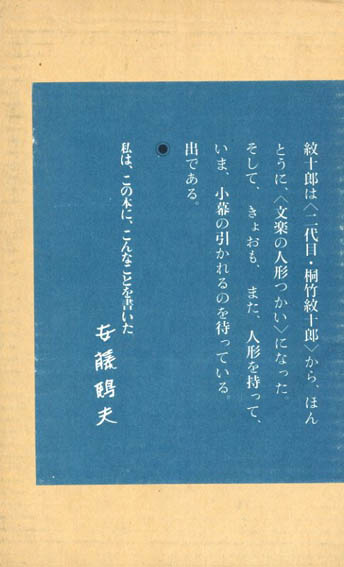 紋十郎は〈二代目・桐竹紋十郎〉から、ほん
とうに、〈文楽の人形つかい〉になった。
そして、きょおも、また、人形を持って、
いま、小幕の引かれるのを待っている。
出である。
私は、この本に、こんなことを書いた
安藤鶴夫